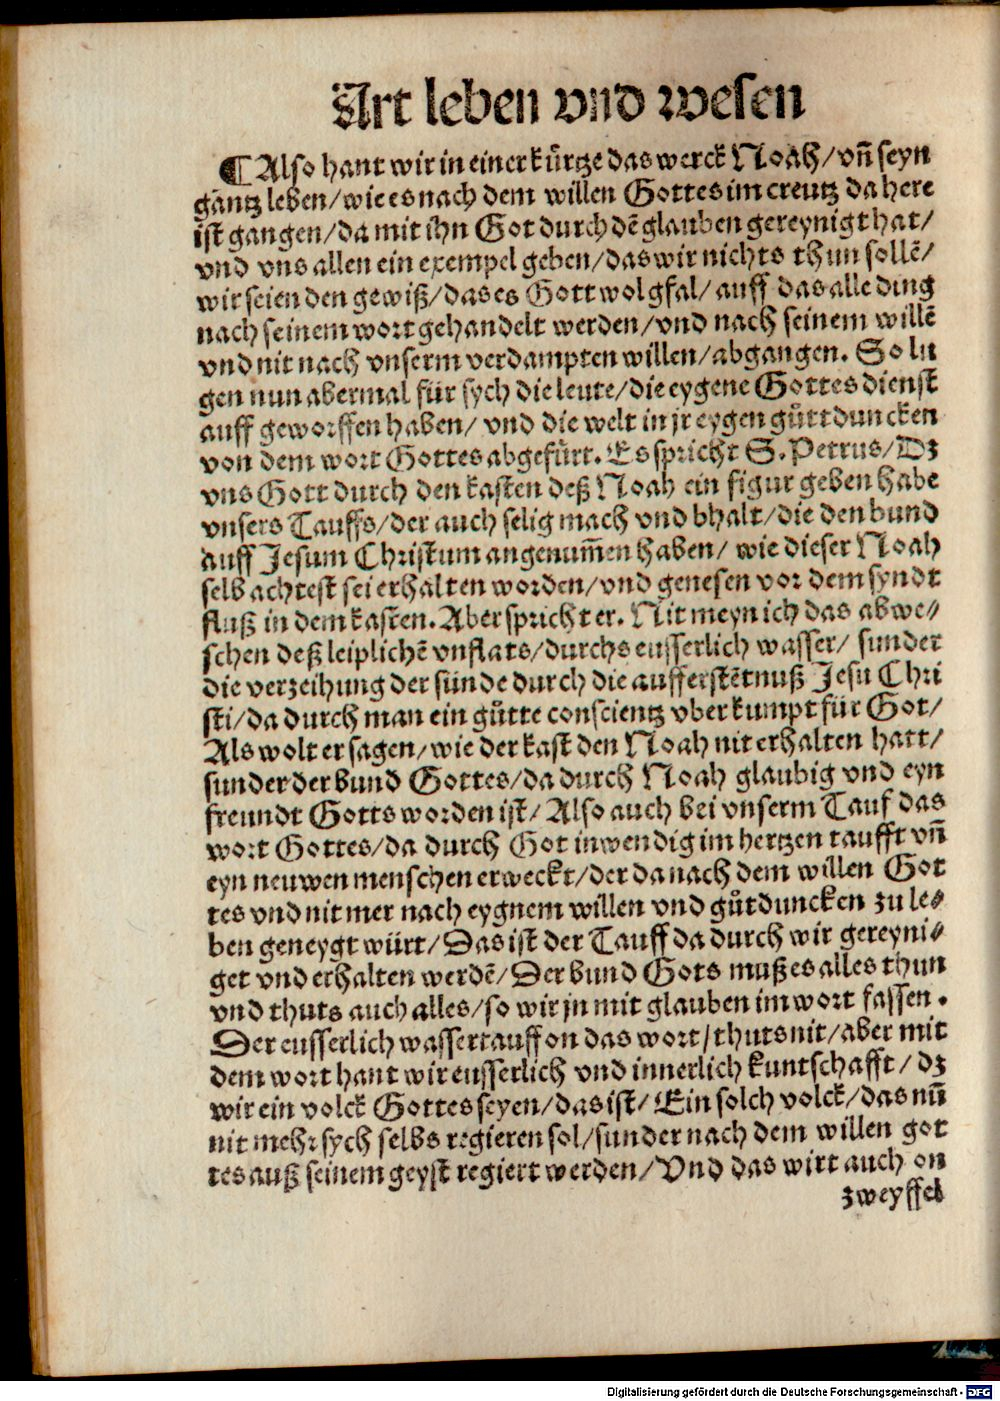 Art leben vnd wesen
¶ Also hant wir in einer kürtze das werck Noah/ vñ seyn
gantz leben/ wie es nach dem willen Gottes im creutz da here
ist gangen/ da mit ihn Got durch dẽ glauben gereynigt hat/
vnd vns allen ein exempel geben/ das wir nichts thun sollẽ/
wir seien den gewiß/ das es Gott wol gfal/ auff das alle ding
nach seinem wort gehandelt werden/ vnd nach seinem willẽ
vnd nit nach vnserm verdampten willen/ abgangen. So lu
gen nun abermal für sych die leute/ die eygene Gottes dienst
auff geworffen haben/ vnd die welt in jr eygen gůttduncken
von dem wort Gottes abgefürt. Es spricht S. Petrus/ Dz
vns Gott durch den kasten deß Noah ein figur geben habe
vnsers Tauffs/ der auch selig mach vnd bhalt/ die den bund
auff Jesum Christum angenum̃en haben/ wie dieser Noah
selb achtest sei erhalten worden/ vnd genesen vor dem syndt
fluß in dem kasten. Aber spricht er. Nit meyn ich das abwe⸗
schen deß leiplichẽ vnflats/ durchs eusserlich wasser/ sunder
die verzeihung der sünde durch die aufferstẽtnuß Jesu Chri
sti/ da durch man ein gůtte conscientz vberkumpt für Got/
Als wolt er sagen/ wie der kast den Noah nit erhalten hatt/
sunder der bund Gottes/ da durch Noah glaubig vnd eyn
freundt Gotts worden ist/ Also auch bei vnserm Tauf das
wort Gottes/ da durch Got inwendig im hertzen taufft vñ
eyn neuwen menschen erweckt/ der da nach dem willen Got
tes vnd nit mer nach eygnem willen vnd gůtduncken zu le⸗
ben geneygt würt/ Das ist der Tauff da durch wir gereyni⸗
get vnd erhalten werdẽ/ Der bund Gots muß es alles thun
vnd thuts auch alles/ so wir jn mit glauben im wort fassen.
Der eusserlich wassertauff on das wort/ thuts nit/ aber mit
dem wort hant wir eusserlich vnd innerlich kuntschafft/ dz
wir ein volck Gottes seyen/ das ist/ Ein solch volck/ das nũ
nit mehr sych selbs regieren sol/ sunder nach dem willen got
tes auß seinem geyst regiert werden/ Vnd das wirt auch on
zweyffel
Digitalisierung gefördert durch die Deutsche Forschungsgemeinschaft - DFG